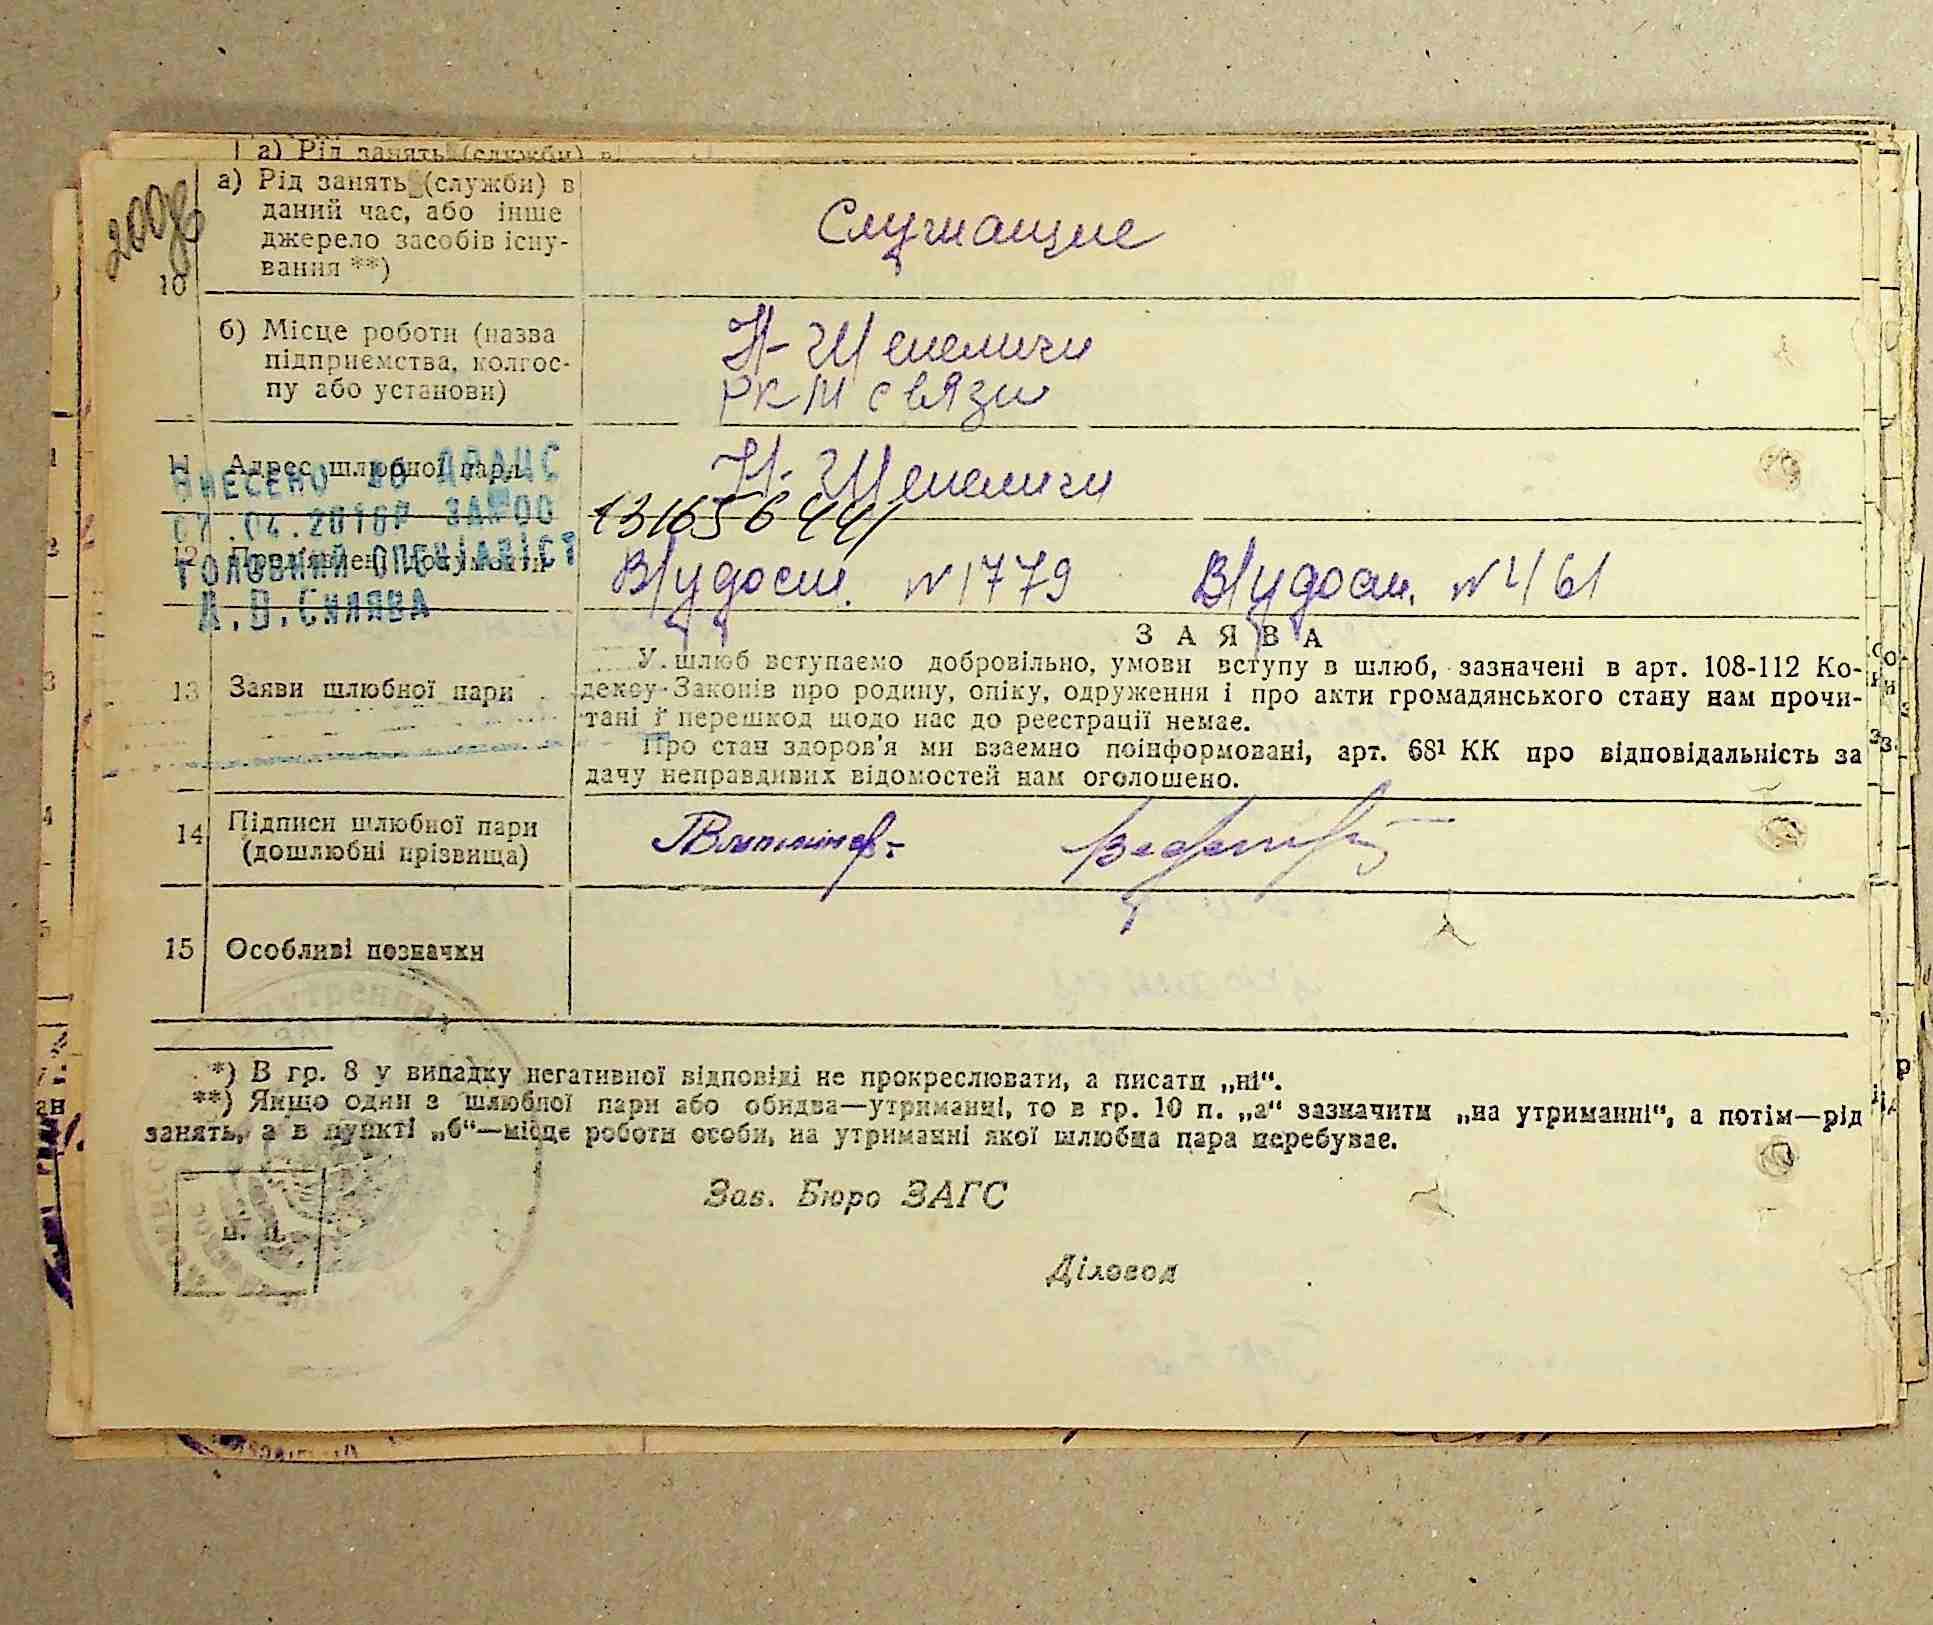 а) Рід занять (службы) в
200зв
а) Рід занять (служби) в
даний час, або інше
джерело засобів існу-
вання **)
10
Служащие
б) Місце роботи (назва
підприємства, колгос-
пу або установи)
Н-Шепеличи
РКМ связи
11 Адрес шлюбної пари
Н-Шепеличи
ВНЕСЕНО ДО ДРАЦС
07.04.2016Р ЗА№00
131656441
ГОЛОВНИЙ СПЕЦІАЛІСТ
12 Пред'явлені документи
В/удост. №1779 В/удост. №461
13 Заяви шлюбної пари
ЗАЯВА
У шлюб вступаємо добровільно, умови вступу в шлюб, зазначені в арт. 108-112 Ко-
дексу Законів про родину, опіку, одруження і про акти громадянського стану нам прочи-
тані і перешкод щодо нас до реєстрації немає.
Про стан здоров'я ми взаємно поінформовані, арт. 68¹ КК про відповідальність за
дачу неправдивих відомостей нам оголошено.
14 Підписи шлюбної пари
(дошлюбні прізвища)
15 Особливі позначки
*) В гр. 8 у випадку негативної відповіді не прокреслювати, а писати „ні“.
**) Якщо один з шлюбної пари або обидва—утриманці, то в гр. 10 п. „а“ зазначити „на утриманні“, а потім—рід
занять, а в пункті „б“—місце роботи особи, на утриманні якої шлюбна пара перебуває.
Зав. Бюро ЗАГС
Діловод